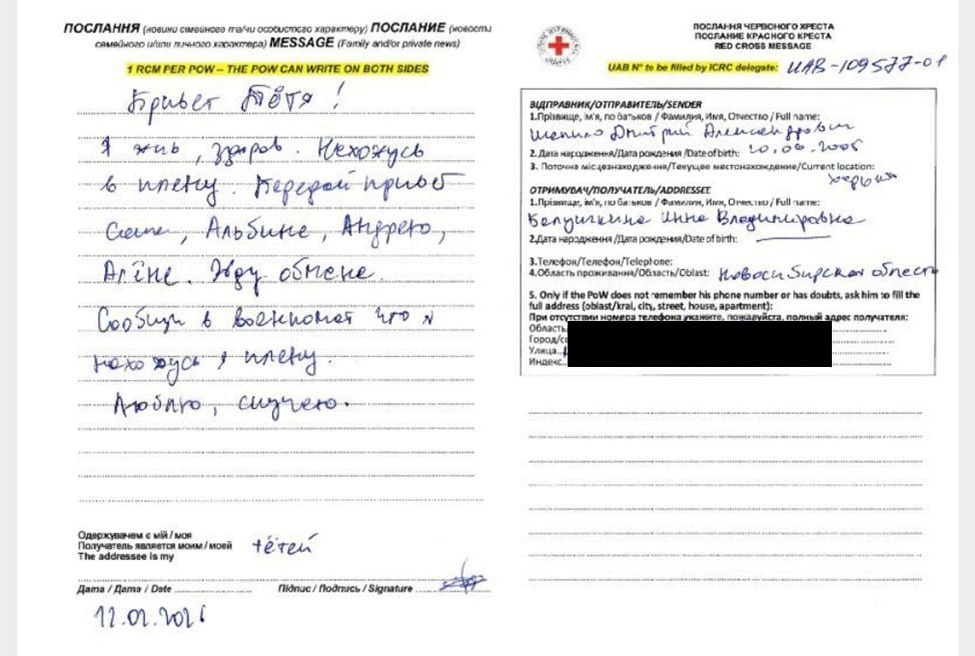 ПОСЛАННЯ (новини сімейного та/чи особистого характеру) ПОСЛАНИЕ (новости
семейного и/или личного характера) MESSAGE (Family and/or private news)
1 RCM PER POW – THE POW CAN WRITE ON BOTH SIDES
Привет Тётя!
Я жив, здоров. Нахожусь
в плену. Передай привет
Саше, Альбине, Андрею,
Алёне. Жду обмена.
Сообщи в военкомат что я
нахожусь в плену.
Люблю, скучаю.
Одержувачем є мій / моя
Получатель является моим / моей
The addressee is my
тётей
Дата / Дата / Date
Підпис / Подпись / Signature
ПОСЛАННЯ ЧЕРВОНОГО ХРЕСТА
ПОСЛАНИЕ КРАСНОГО КРЕСТА
RED CROSS MESSAGE
UAB N° to be filled by ICRC delegate: UAB-109577-01
ВІДПРАВНИК/ОТПРАВИТЕЛЬ/SENDER
1.Прізвище, ім'я, по батькові / Фамилия, Имя, Отчество / Full name:
Дмитрий Александрович
2. Дата народження/Дата рождения /Date of birth:
3. Поточна місцезнаходження/Текущее местонахождение/Current location:
ОТРИМУВАЧ/ПОЛУЧАТЕЛЬ/ADDRESSEE
1.Прізвище, ім'я, по батькові / Фамилия, Имя, Отчество / Full name:
Инна Владимировна
2.Дата народження /Дата рождения/Date of birth:
3.Телефон/Телефон/Telephone:
4.Область проживання/Область/Oblast: Новосибирская область
5. Only if the PoW does not remember his phone number or has doubts, ask him to fill the
full address (oblast/krai, city, street, house, apartment):
При отсутствии номера телефона укажите, пожалуйста, полный адрес получателя:
Область
Город/с
Улица
Индекс